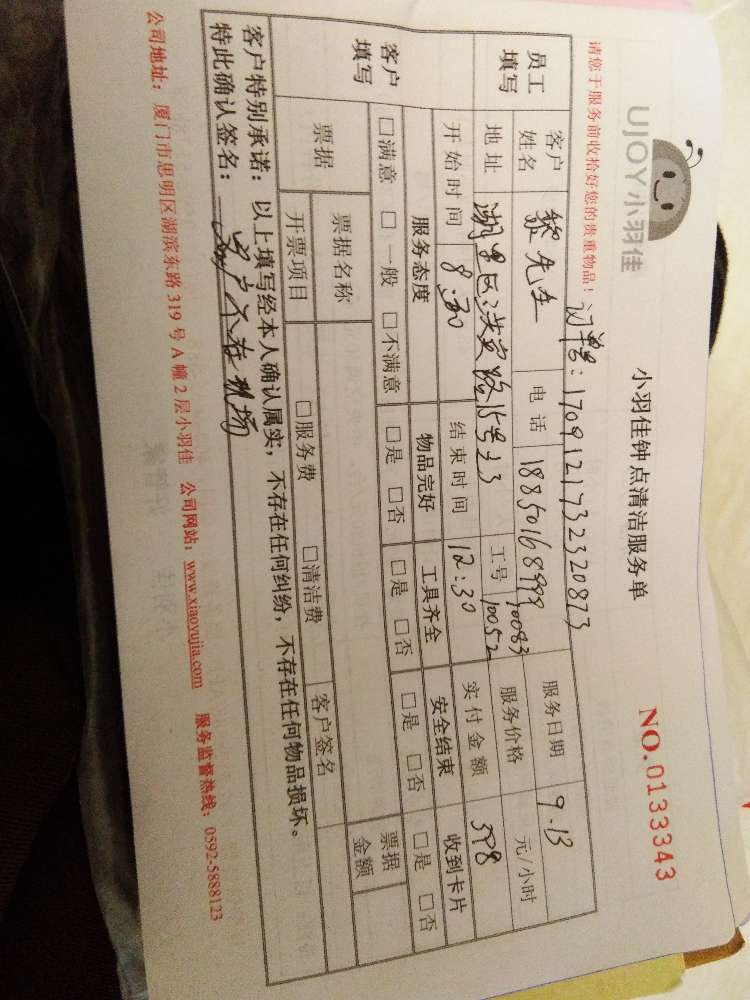 UJOY小羽佳
小羽佳钟点清洁服务单
NO.0133343
请您于服务前收拾好您的贵重物品！
订单号：1709121732320873
员工填写 客户姓名 黎先生 电话 18850168999 工号 10083 10052 服务日期 9.13
地址 湖里区 路15号 服务价格 元/小时
开始时间 8:30 结束时间 12:30 实付金额 398
客户填写 服务态度 物品完好 工具齐全 安全结束 收到卡片
□满意 □一般 □不满意 □是 □否 □是 □否 □是 □否 □是 □否
票据 票据名称 票据金额
开票项目 □服务费 □清洁费 客户签名
客户特别承诺：以上填写经本人确认属实，不存在任何纠纷，不存在任何物品损坏。
特此确认签名：客户不在现场
公司地址：厦门市思明区湖滨东路319号A幢2层小羽佳 公司网站：www.xiaoyujia.com 服务监督热线：0592-5888123